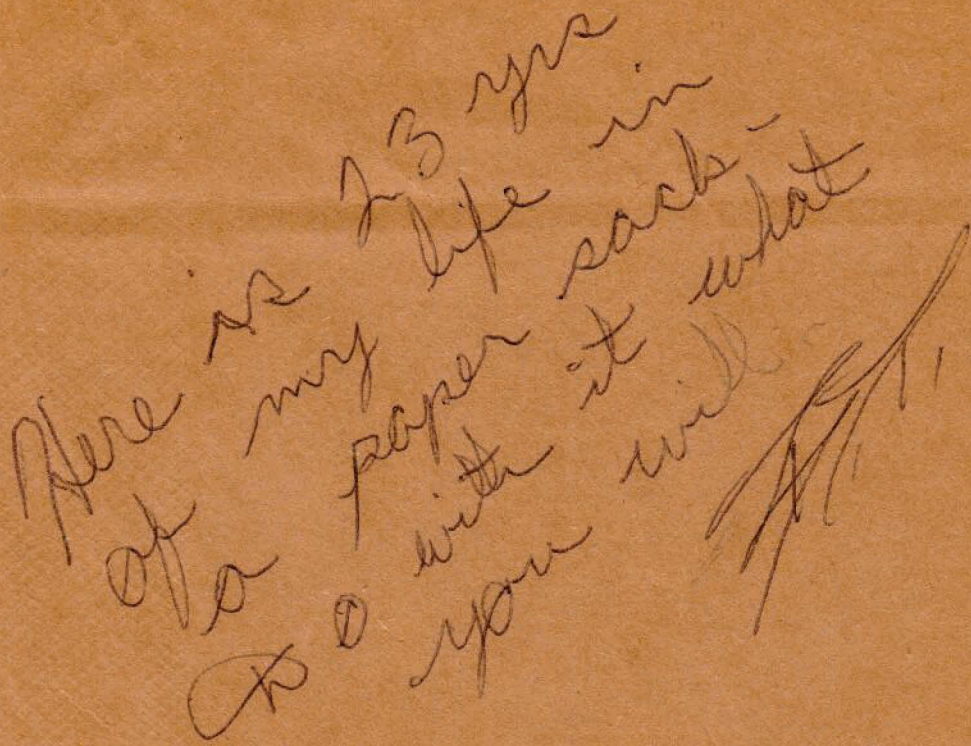 Here is 23 yrs
of my life in
a paper sack -
Do with it what
you will